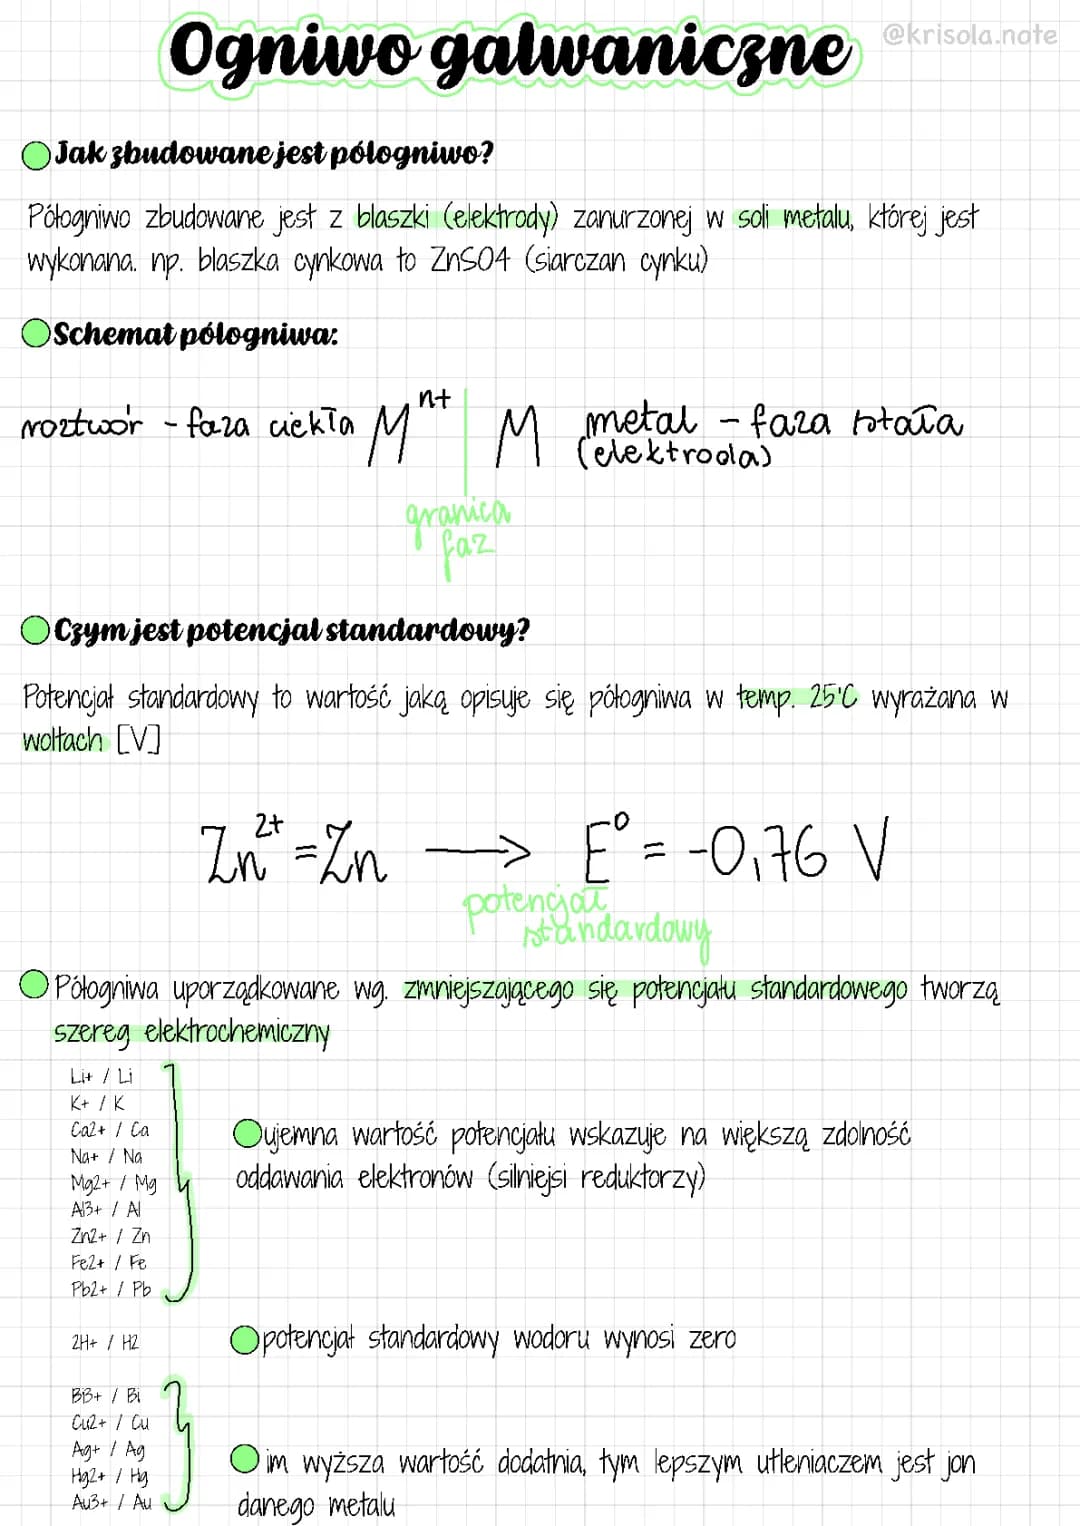 Ogniwo galwaniczne
@krisola.note
Jak zbudowane jest półogniwo?
Półogniwo zbudowane jest z blaszki (elektrody) zanurzonej w soli metalu, której jest
wykonana. np. blaszka cynkowa to ZnSO4 (siarczan cynku)
Schemat półogniwa:
roztwór - faza ciekła M^n+ | M metal - faza stała
(elektroda)
granica
faz
Czym jest potencjał standardowy?
Potencjał standardowy to wartość jaką opisuje się półogniwa w temp. 25°C wyrażana w
woltach [V]
Zn^2+ = Zn → E° = -0,76 V
potencjał
standardowy
Półogniwa uporządkowane wg. zmniejszającego się potencjału standardowego tworzą
szereg elektrochemiczny
Li+ / Li
K+ / K
Ca2+ / Ca
Na+ / Na
Mg2+ / Mg
Al3+ / Al
Zn2+ / Zn
Fe2+ / Fe
Pb2+ / Pb
ujemna wartość potencjału wskazuje na większą zdolność
oddawania elektronów (silniejsi reduktorzy)
2H+ / H2
potencjał standardowy wodoru wynosi zero
BB+ / Bi
Cu2+ / Cu
Ag+ / Ag
Hg2+ / Hg
Au3+ / Au
im wyższa wartość dodatnia, tym lepszym utleniaczem jest jon
danego metalu